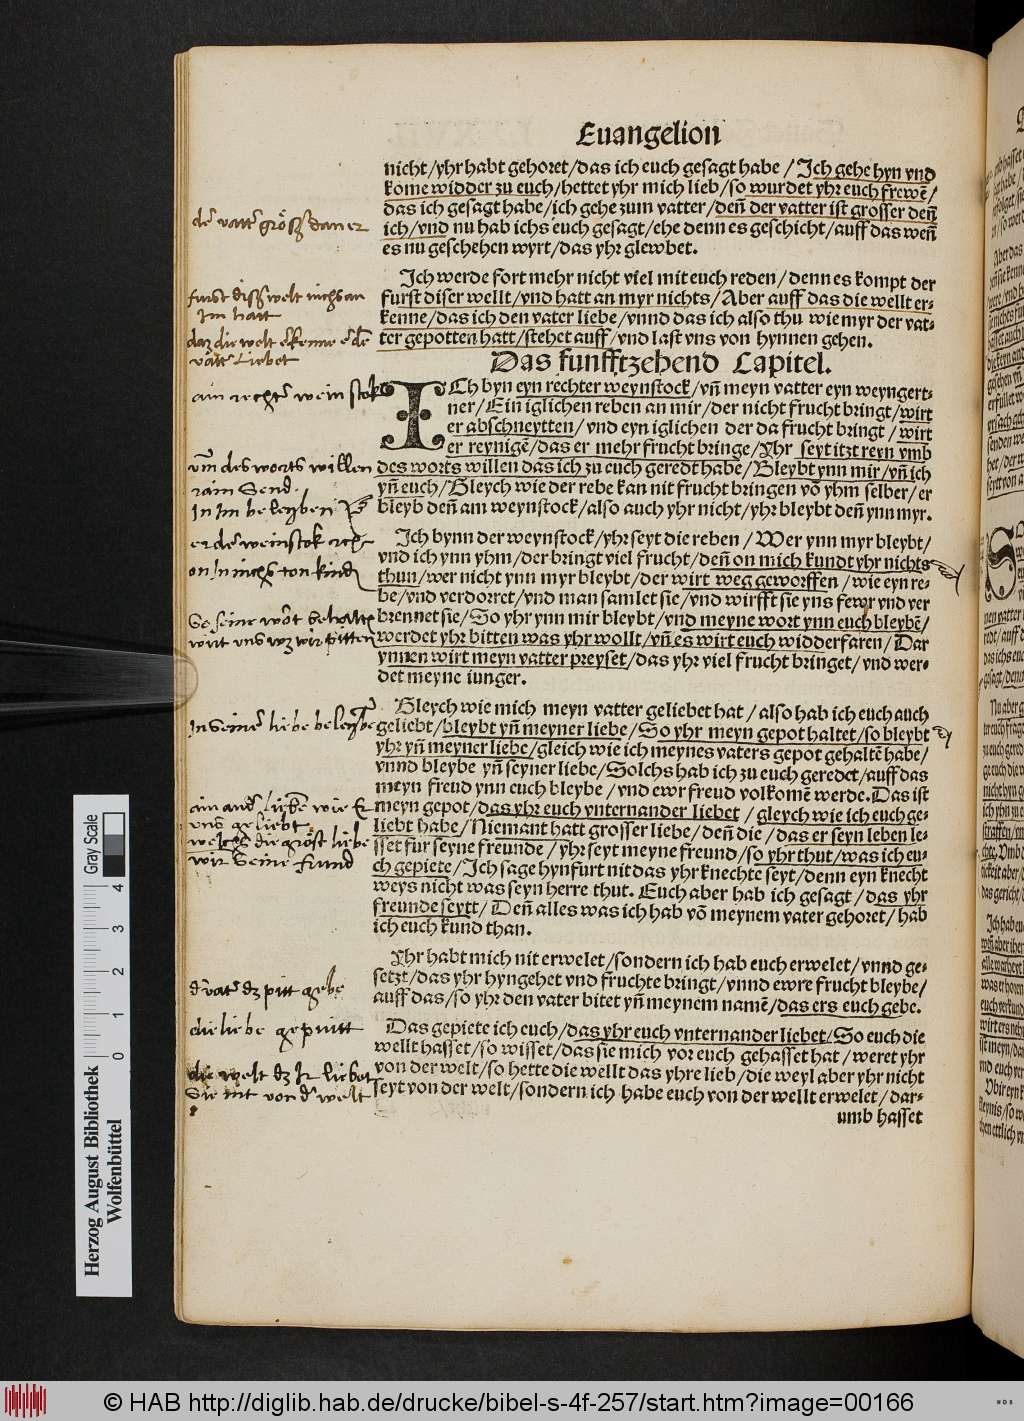 Euangelion
nicht/yhr habt gehoret/das ich euch gesagt habe/Ich gehe hyn vnd
kome widder zu euch/hettet yhr mich lieb/so wurdet yhr euch frewē/
das ich gesagt habe/ich gehe zum vatter/deñ der vatter ist grosser deñ
ich/vnd nu hab ichs euch gesagt/ehe denn es geschicht/auff das weñ
es nu geschehen wyrt/das yhr glewbet.
Ich werde fort mehr nicht viel mit euch reden/denn es kompt der
furst diser wellt/vnd hatt an myr nichts/Aber auff das die wellt er-
kenne/das ich den vater liebe/vnnd das ich also thu wie myr der vat-
ter gepotten hatt/stehet auff/vnd last vns von hynnen gehen.
Das funfftzehend Capitel.
ICh byn eyn rechter weynstock/vñ meyn vatter eyn weyngert-
ner/Ein iglichen reben an mir/der nicht frucht bringt/wirt
er abschneytten/vnd eyn iglichen der da frucht bringt/wirt
er reynigē/das er mehr frucht bringe/Yhr seyt itzt reyn vmb
des worts willen das ich zu euch geredt habe/Bleybt ynn mir/vñ ich
yñ euch/Gleych wie der rebe kan nit frucht bringen vō yhm selber/er
bleyb deñ am weynstock/also auch yhr nicht/yhr bleybt deñ ynn myr.
Ich bynn der weynstock/yhr seyt die reben/Wer ynn myr bleybt/
vnd ich ynn yhm/der bringt viel frucht/deñ on mich kundt yhr nichts
thun/wer nicht ynn myr bleybt/der wirt weg geworffen/wie eyn re-
be/vnd verdorret/vnd man samlet sie/vnd wirfft sie yns fewr vnd ver
brennet sie/So yhr ynn mir bleybt/vnd meyne wort ynn euch bleybē/
werdet yhr bitten was yhr wollt/vñ es wirt euch widderfaren/Dar
ynnen wirt meyn vatter preyset/das yhr viel frucht bringet/vnd wer-
det meyne iunger.
Gleych wie mich meyn vatter geliebet hat/also hab ich euch auch
geliebt/bleybt yñ meyner liebe/So yhr meyn gepot haltet/so bleybt
yhr yñ meyner liebe/gleich wie ich meynes vaters gepot gehaltē habe/
vnnd bleybe yñ seyner liebe/Solchs hab ich zu euch geredet/auff das
meyn freud ynn euch bleybe/vnd ewr freud volkomē werde. Das ist
meyn gepot/das yhr euch vnternander liebet/gleych wie ich euch ge-
liebt habe/Niemant hatt grosser liebe/deñ die/das er seyn leben le-
sset fur seyne freunde/yhr seyt meyne freund/so yhr thut/was ich eu-
ch gepiete/Ich sage hynfurt nit das yhr knechte seyt/denn eyn knecht
weys nicht was seyn herre thut. Euch aber hab ich gesagt/das yhr
freunde seytt/Deñ alles was ich hab vō meynem vater gehoret/hab
ich euch kund than.
Yhr habt mich nit erwelet/sondern ich hab euch erwelet/vnnd ge-
setzt/das yhr hyngehet vnd fruchte bringt/vnnd ewre frucht bleybe/
auff das/so yhr den vater bitet yñ meynem namē/das ers euch gebe.
Das gepiete ich euch/das yhr euch vnternander liebet/So euch die
wellt hasset/so wisset/das sie mich vor euch gehasset hat/weret yhr
von der welt/so hette die wellt das yhre lieb/die weyl aber yhr nicht
seyt von der welt/sondern ich habe euch von der wellt erwelet/dar-
umb hasset
furst diss welt nichs an
Im hatt
vätter Liebet
ain rechter weinstok
vm des worts willen
rain Send
wirt vns wz wir bitten
vns geliebt
wir Seine frund
die liebe gepuitt
die welt dz Ir liebet
Sie nit von dr welt
Gray Scale
4
3
2
1
0
Herzog August Bibliothek
Wolfenbüttel
© HAB http://diglib.hab.de/drucke/bibel-s-4f-257/start.htm?image=00166